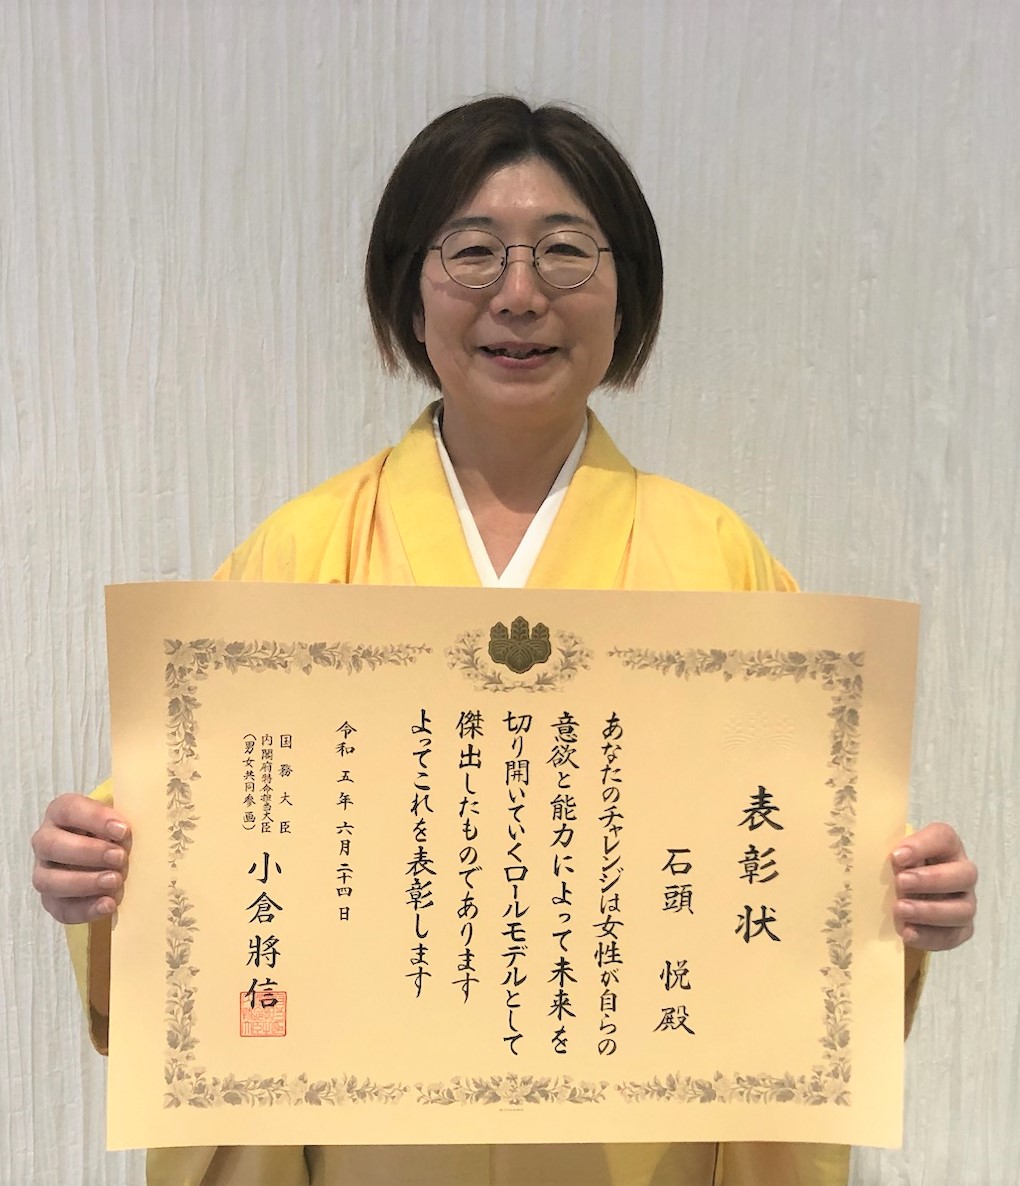 表彰状
石頭 悦 殿
あなたのチャレンジは女性が自らの
意欲と能力によって未来を
切り開いていくロールモデルとして
傑出したものであります
よってこれを表彰します
令和五年六月二十四日
国務大臣
内閣府特命担当大臣
(男女共同参画)
小倉將信